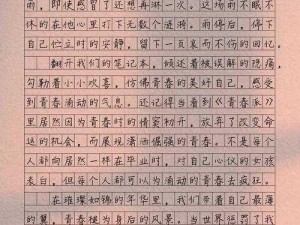 雨，即使感冒了还想再淋一次。这场雨不眠不
休的在他心里打下无数个涟漪。雨停后，停下
自己伫立时的安静，留下一页哀而不伤的回忆。
翻开我们的笔记本，倾述着被误解的隐痛，
勾勒着小小欢喜，仿佛青春的美好自己，感受
到青春涌动的气息。还记得当看到《青春派》
里居然因为青春时的情窦初开，放弃了改变命
运的机会，而展现潇洒倔强的青春。不是每个
人都向居然一样在毕业时，对自己心仪的女孩
表白，但每个人都可以为涌动的青春去疯狂。
在璀璨如锦的年华里，我们带着自己最薄
的翼，青春褪为身后的风景，当世界惩罚了我